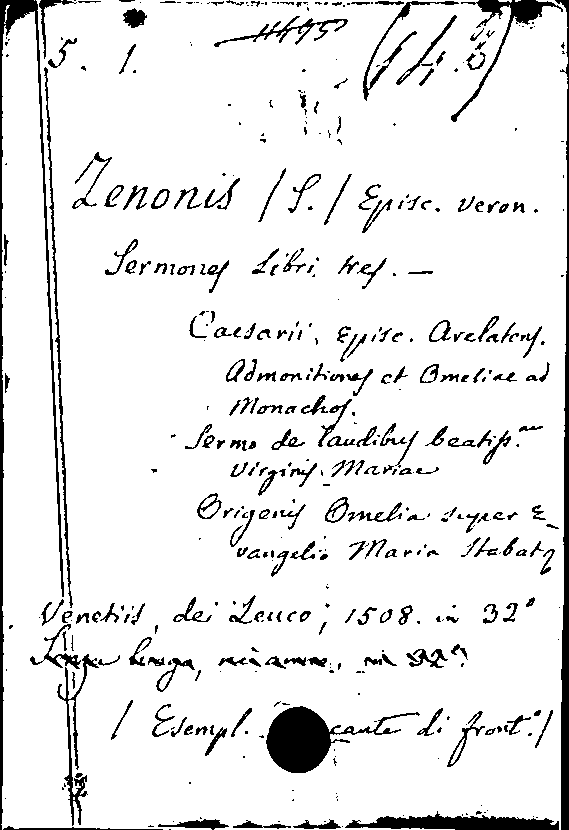 5. 1.
11495
(14.
Zenonis / S. / Episc. Veron.
Sermones Libri tres. —
Caesarii, Episc. Arelatens.
Admonitiones et Omeliae ad
Monachos.
Sermo de laudibus beatiss.mae
Virginis Mariae
Origenis Omelia super E-
vangelio Maria Stabat
Venetiis, dei Leuco, 1508. in 32°
in 32°.
/ Esempl. cante di front.º /